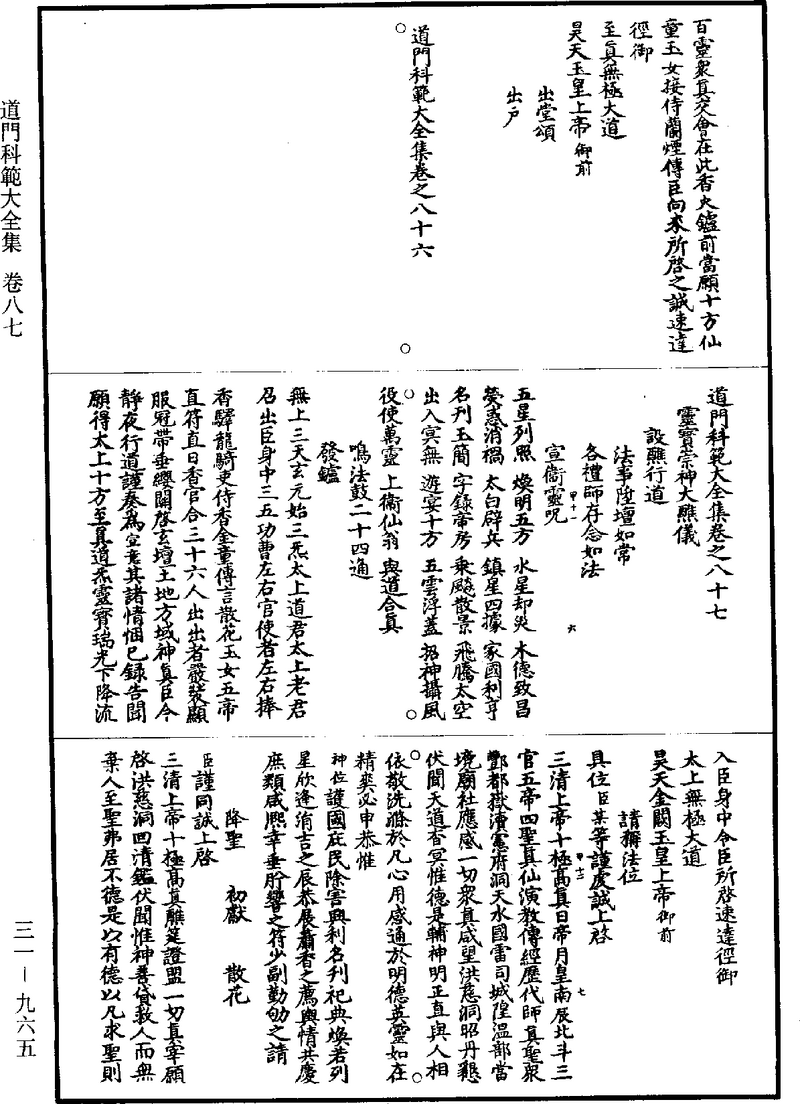 道門科範大全集　卷八七
百靈衆真交會在此香火鑪前當願十方仙
童玉女接侍蘭煙傳臣向來所啓之誠速達
徑御
至真無極大道
昊天玉皇上帝御前
出堂頌
出户
道門科範大全集卷之八十六
道門科範大全集卷之八十七
靈寶崇神大醮儀
設醮行道
法事陞壇如常
各禮師存念如法
宣衞靈呪
五星列照　煥明五方　水星却災　木德致昌
熒惑消禍　太白辟兵　鎮星四據　家國利亨
名刊玉簡　字錄帝房　乘飈散景　飛騰太空
出入冥無　遊宴十方　五雲浮蓋　招神攝風
役使萬靈　上衞仙翁　與道合真
鳴法鼓二十四通
發鑪
無上三天玄元始三炁太上道君太上老君
召出臣身中三五功曹左右官使者左右捧
香驛龍騎吏侍香金童傳言散花玉女五帝
直符直日香官合三十六人出出者嚴裝顯
服冠帶垂纓關啓玄壇土地方域神真臣今
靜夜行道謹奏爲宣意其諸情悃已録告聞
願得太上十方至真道炁靈寶瑞光下降流
入臣身中令臣所啓速達徑御
太上無極大道
昊天金闕玉皇上帝御前
請稱法位
具位臣某等謹虔誠上啓
三清上帝十極高真日帝月皇南辰北斗三
官五帝四聖真仙演教傳經歷代師真聖衆
酆都嶽瀆憲府洞天水國雷司城隍温部當
境廟社應感一切衆真咸望洪慈洞昭丹懇
伏聞天道杳冥惟德是輔神明正直與人相
依敬洗滌於凡心用感通於明德英靈如在
精爽必申恭惟
神位護國庇民除害興利名刋祀典煥若列
星欣逢絹吉之辰恭展蕭香之薦輿情共慶
庶類咸熙幸垂肸蠁之符少副勤劬之請
降聖　初獻　散花
臣謹同誠上啓
三清上帝十極高真醮筵證盟一切真宰願
啓洪慈洞四清鑑伏聞惟神善貸救人而無
棄人至聖弗居不德是以有德以凡求聖則
三一－九六五